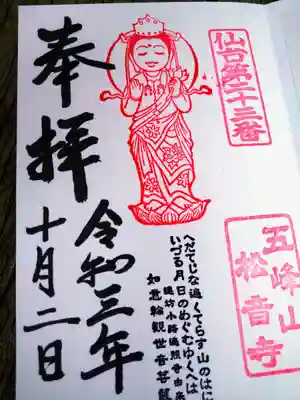 仙台第二十三番
五峰山
松音寺
へだてじな遍くてらす山のはに
いづる月日のめぐむゆくへは
堤坊小路遍照寺由来
如意輪観世音菩薩
奉拝
令和三年
十月二日